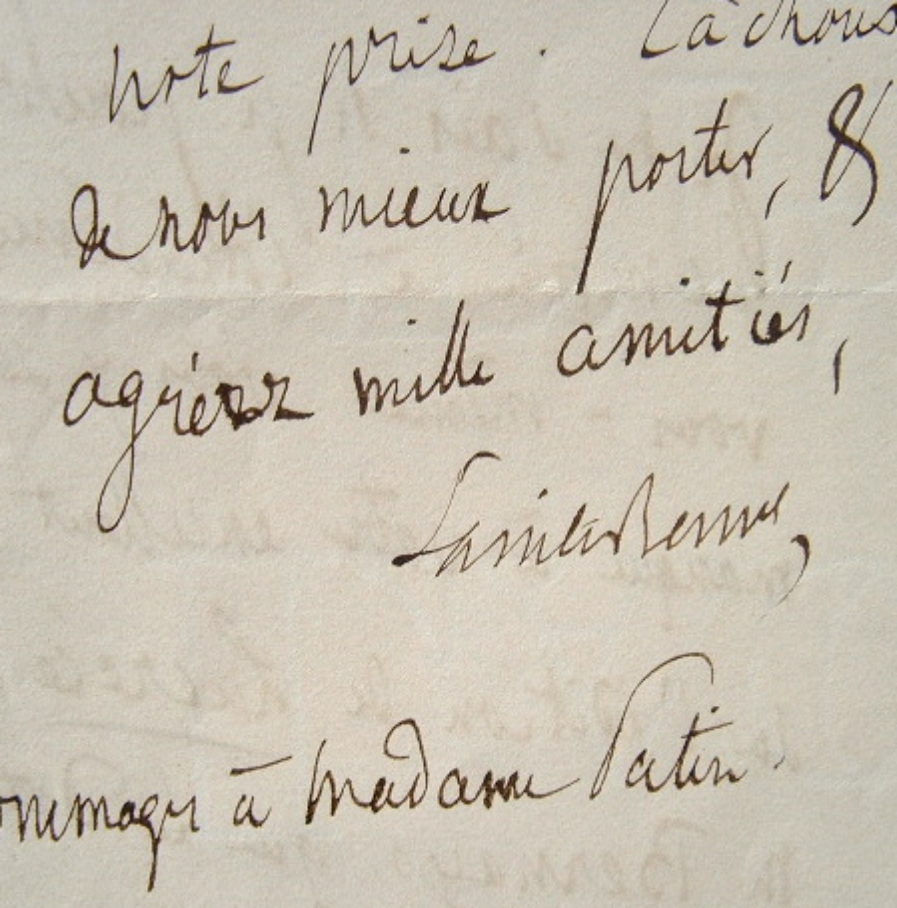 note prise. Tâchons
de nous mieux porter, &
agréez mille amitiés,
Sainte Beuve,
ommages à Madame Patin.